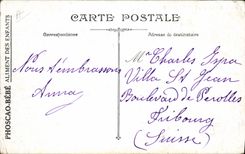 CARTE POSTALE
Correspondance
Adresse du destinataire
PHOSCAO-BÉBÉ ALIMENT DES ENFANTS
Nous t'embrassons
Anna
Mr Charles
Villa St Jean
Boulevard de Perolles
Fribourg
(Suisse)